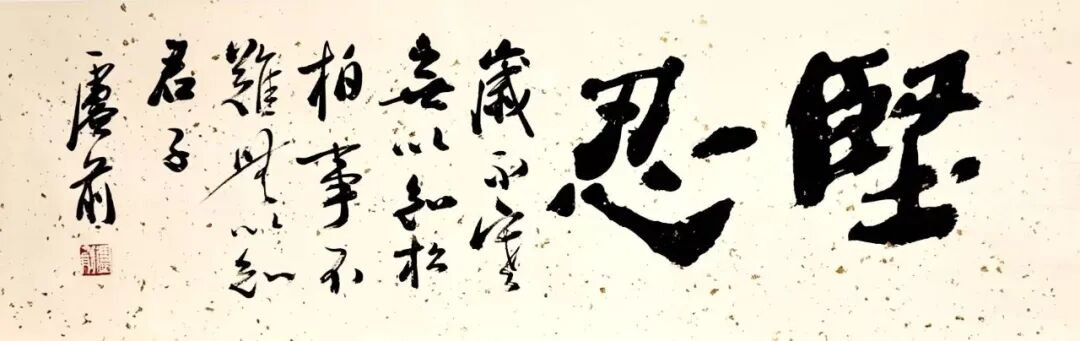 堅忍
歲不寒
無以知松
柏事不
難無以知
君子
盧前